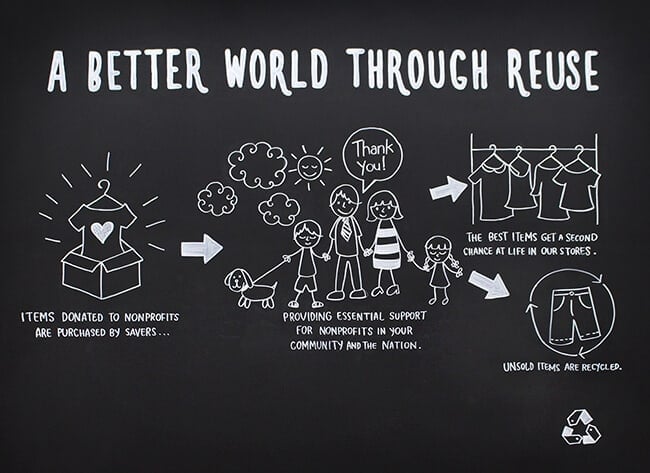 A BETTER WORLD THROUGH REUSE
Thank
You!
ITEMS DONATED TO NONPROFITS
ARE PURCHASED BY SAVERS...
PROVIDING ESSENTIAL SUPPORT
FOR NONPROFITS IN YOUR
COMMUNITY AND THE NATION.
THE BEST ITEMS GET A SECOND
CHANCE AT LIFE IN OUR STORES.
UNSOLD ITEMS ARE RECYCLED.